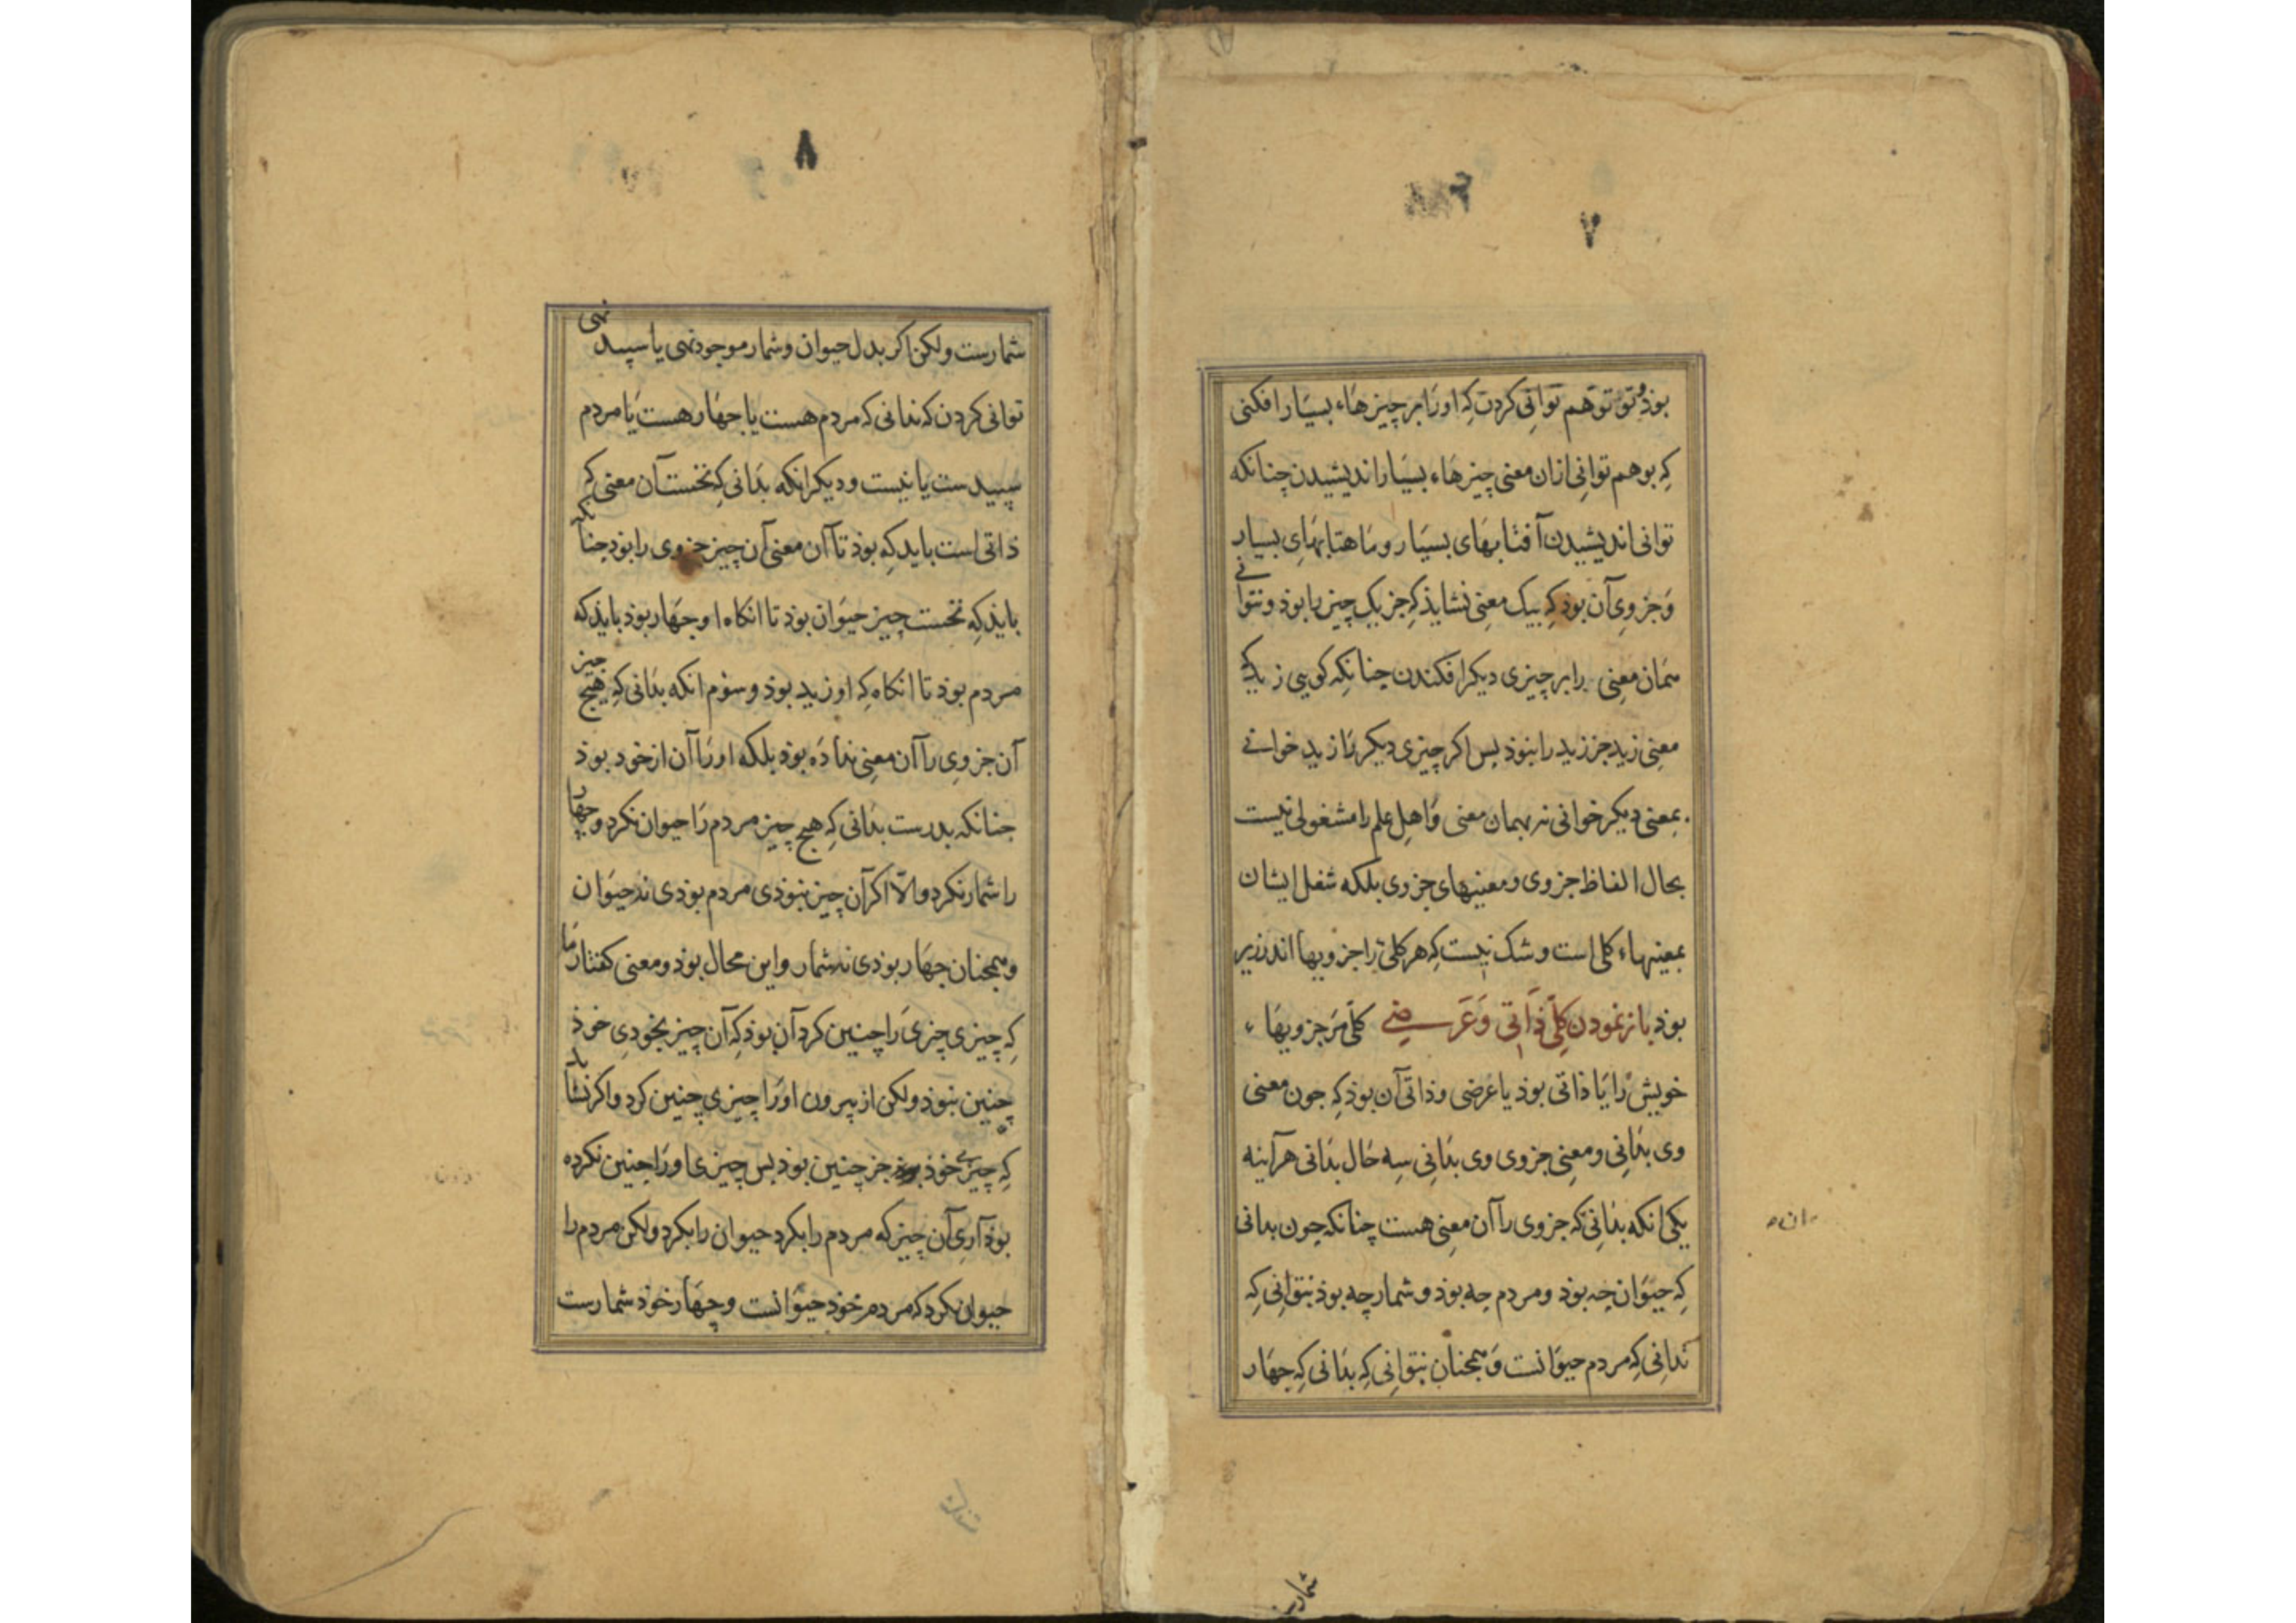 ۷
بوذ و تو توهم توانی کردن که او را بر چیزهاء بسیار افکنی
که بوهم توانی ازان معنی چیزهاء بسیار اندیشیدن چنانکه
توانی اندیشیدن آفتابهای بسیار و ماهتابهای بسیار
و جزوی آن بوذ که بیک معنی نشایذ که جز یک چیز را بوذ و نتوانی
همان معنی را بر چیزی دیکر افکندن چنانکه کویی زید که
معنی زید جز زید را نبوذ بس اکر چیزی دیکر را زید خوانی
بمعنی دیکر خوانی نه بهمان معنی و اهل علم را مشغولی نیست
بحال الفاظ جزوی و معنیهای جزوی بلکه شغل ایشان
بمعنیهاء کلی است و شک نیست که هر کلّی را جزویها اندر زیر
بوذ باز نمودن کلّی ذاتی و عرضی کلّی مر جزویهاء
خویش را یا ذاتی بوذ یا عرضی و ذاتی آن بوذ که جون معنی
وی بدانی و معنی جزوی وی بدانی سه حال بدانی هرآینه
یکی انکه بدانی که جزوی را آن معنی هست چنانکه چون بدانی
که حیوان چه بوذ و مردم چه بوذ و شمار چه بوذ نتوانی که
ندانی که مردم حیوانست و همجنان نتوانی که بدانی که جهار
۸
شمارست ولکن اکر بدل حیوان و شمار موجود نهی یا سپید نهی
توانی کردن که ندانی که مردم هست یا جهار هست یا مردم
سپیدست یا نیست و دیکر انکه بدانی که نخست آن معنی که
ذاتی است باید که بوذ تا آن معنی آن چیز جزوی را بوذ جنانکه
بایذ که نخست چیز حیوان بوذ تا انکاه او جهار بوذ بایذ که
مردم بوذ تا انکاه که او زید بوذ و سوم انکه بدانی که هیچ جیز
آن جزوی را آن معنی نداده بوذ بلکه او را آن از خود بوذ
جنانکه بدرست بدانی که هیچ چیز مردم را حیوان نکرد و چهار
را شمار نکرد والّا اکر آن چیز نبوذی مردم بوذی نه حیوان
و همجنان جهار بوذی نه شمار و این محال بوذ و معنی کفتار ما
که چیزی چیزی را چنین کرد آن بوذ که آن چیز بخودی خوذ
چنین نبوذ ولکن از بیرون او را چیزی چنین کرد و اکر نشاید
که چیزی خوذ جز چنین بوذ بس چیزی او را چنین نکرده
بوذ آری آن چیز که مردم را بکرد حیوان را بکرد ولکن مردم را
حیوان نکرد که مردم خوذ حیوانست و چهار خوذ شمارست